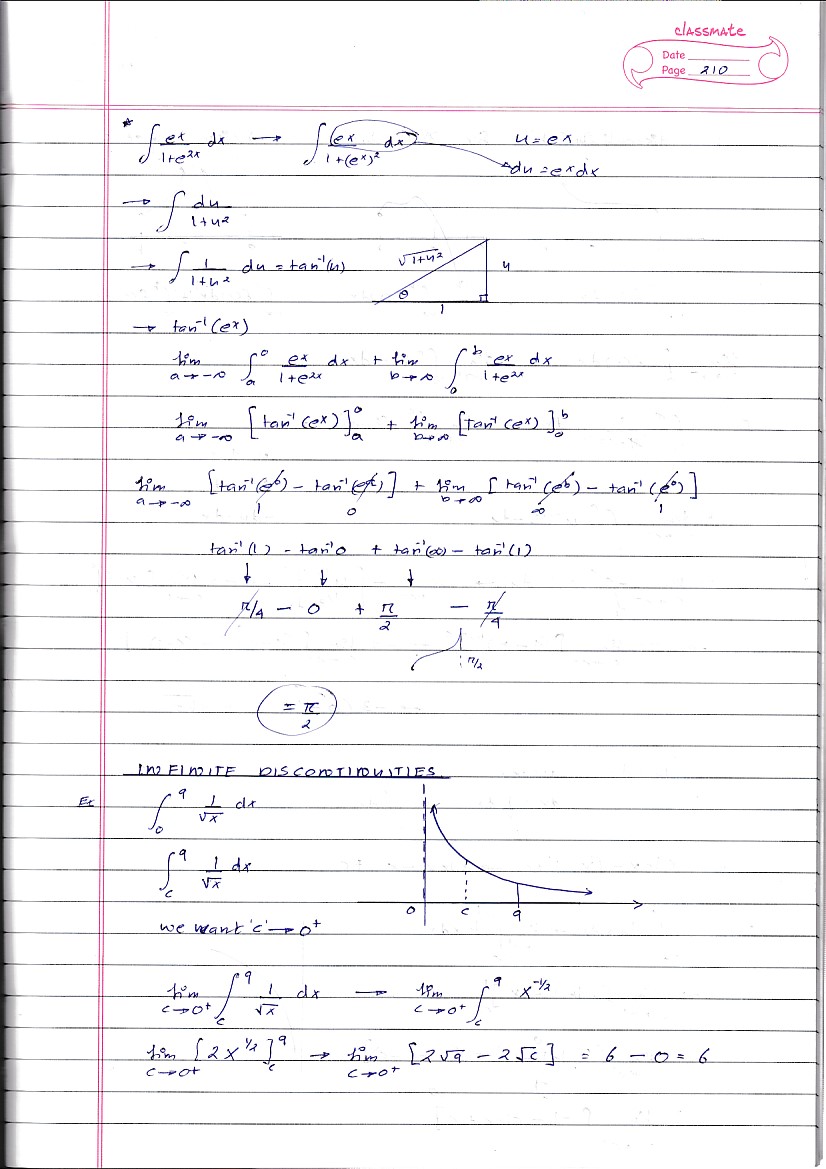 classmate
Date
Page 210
* ∫ eˣ/(1+e²ˣ) dx → ∫ eˣ/(1+(eˣ)²) dx u = eˣ
du = eˣdx
→ ∫ du/(1+u²)
→ ∫ 1/(1+u²) du = tan⁻¹(u) √(1+u²) u θ 1
→ tan⁻¹(eˣ)
lim a→-∞ ∫ₐ⁰ eˣ/(1+e²ˣ) dx + lim b→∞ ∫₀ᵇ eˣ/(1+e²ˣ) dx
lim a→-∞ [tan⁻¹(eˣ)]ₐ⁰ + lim b→∞ [tan⁻¹(eˣ)]₀ᵇ
lim a→-∞ [tan⁻¹(e⁰) - tan⁻¹(eᵃ)] + lim b→∞ [tan⁻¹(eᵇ) - tan⁻¹(e⁰)]
1 0 ∞ 1
tan⁻¹(1) - tan⁻¹0 + tan⁻¹(∞) - tan⁻¹(1)
↓ ↓ ↓
π/4 - 0 + π/2 - π/4
π/2
= π/2
INFINITE DISCONTINUITIES
Ex ∫₀⁹ 1/√x dx
∫c⁹ 1/√x dx
0 c 9
we want 'c' → 0⁺
lim c→0⁺ ∫c⁹ 1/√x dx → lim c→0⁺ ∫c⁹ x^(-1/2)
lim c→0⁺ [2x^(1/2)]c⁹ → lim c→0⁺ [2√9 - 2√c] = 6 - 0 = 6